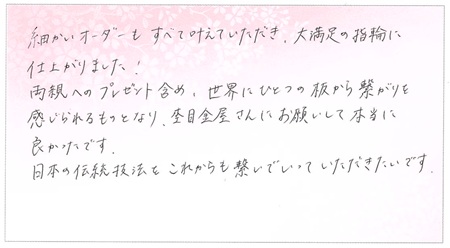 細かいオーダーも すべて叶えていただき、大満足の指輪に
仕上がりました！
両親へのプレゼント含め、世界にひとつの板から繋がりを
感じられるものとなり、杢目金屋さんにお願いして本当に
良かったです。
日本の伝統技法を これからも繋いでいって いただきたいです。